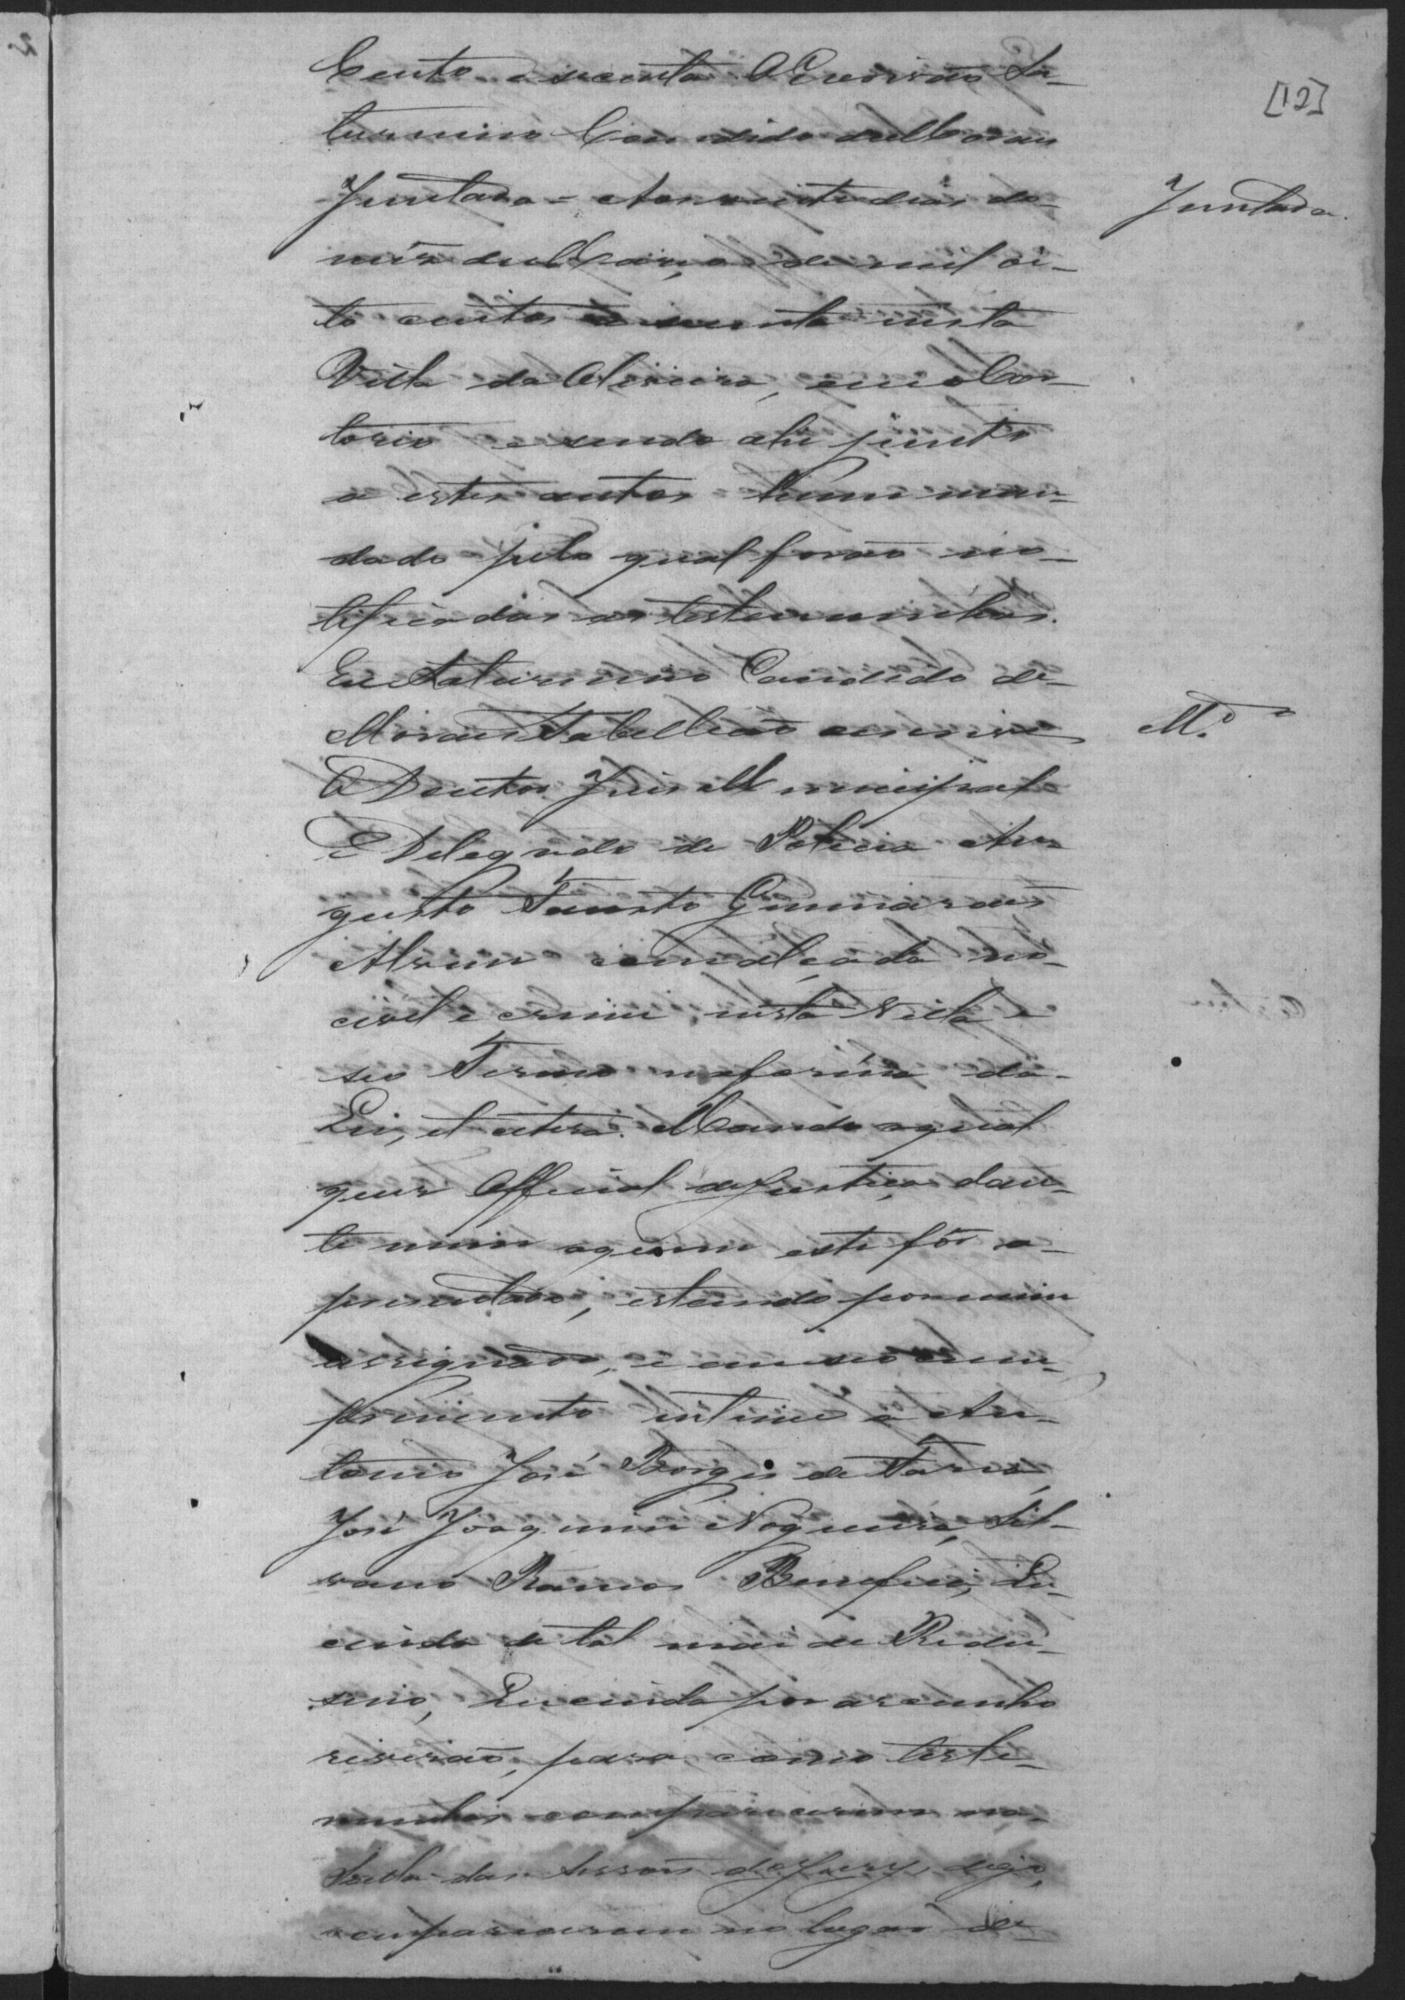 [12]
Cento e secenta O Escrivão Sa-
turnino Candido de Moraes
Juntada - Aos vinte dias do
Juntada
mês de Março de mil oi-
to centos e secenta nesta
Villa da Oliveira, em o Car-
torio e sendo ahi junto
a estes autos hum man-
dado pelo qual forão no-
tificadas as testemunhas.
Eu Saturnino Candido de
Moraes Tabellião escrivi
M.do
O Doutor Juis Municipal
E Delegado de Policia Au-
gusto Fausto Guimarães
Alvim com alçada no
civel e crime, nesta Villa e
seo Termo na forma da
Lei, et cetera. Mando a qual
quer Official de Justiça dan-
te mim a quem este fôr a-
presentado, estando por mim
assignado, e em seo cum-
primento intime a An-
tonio José Borges de Faria,
José Joaquim Nogueira, Sil-
verio Ramos Lu-
cinda de tal mãi de Redu-
sino, Lucinda por
para como teste-
munhas comparecerem na
Salla das Sessoens do Jury, digo,
comparecerem no lugar de